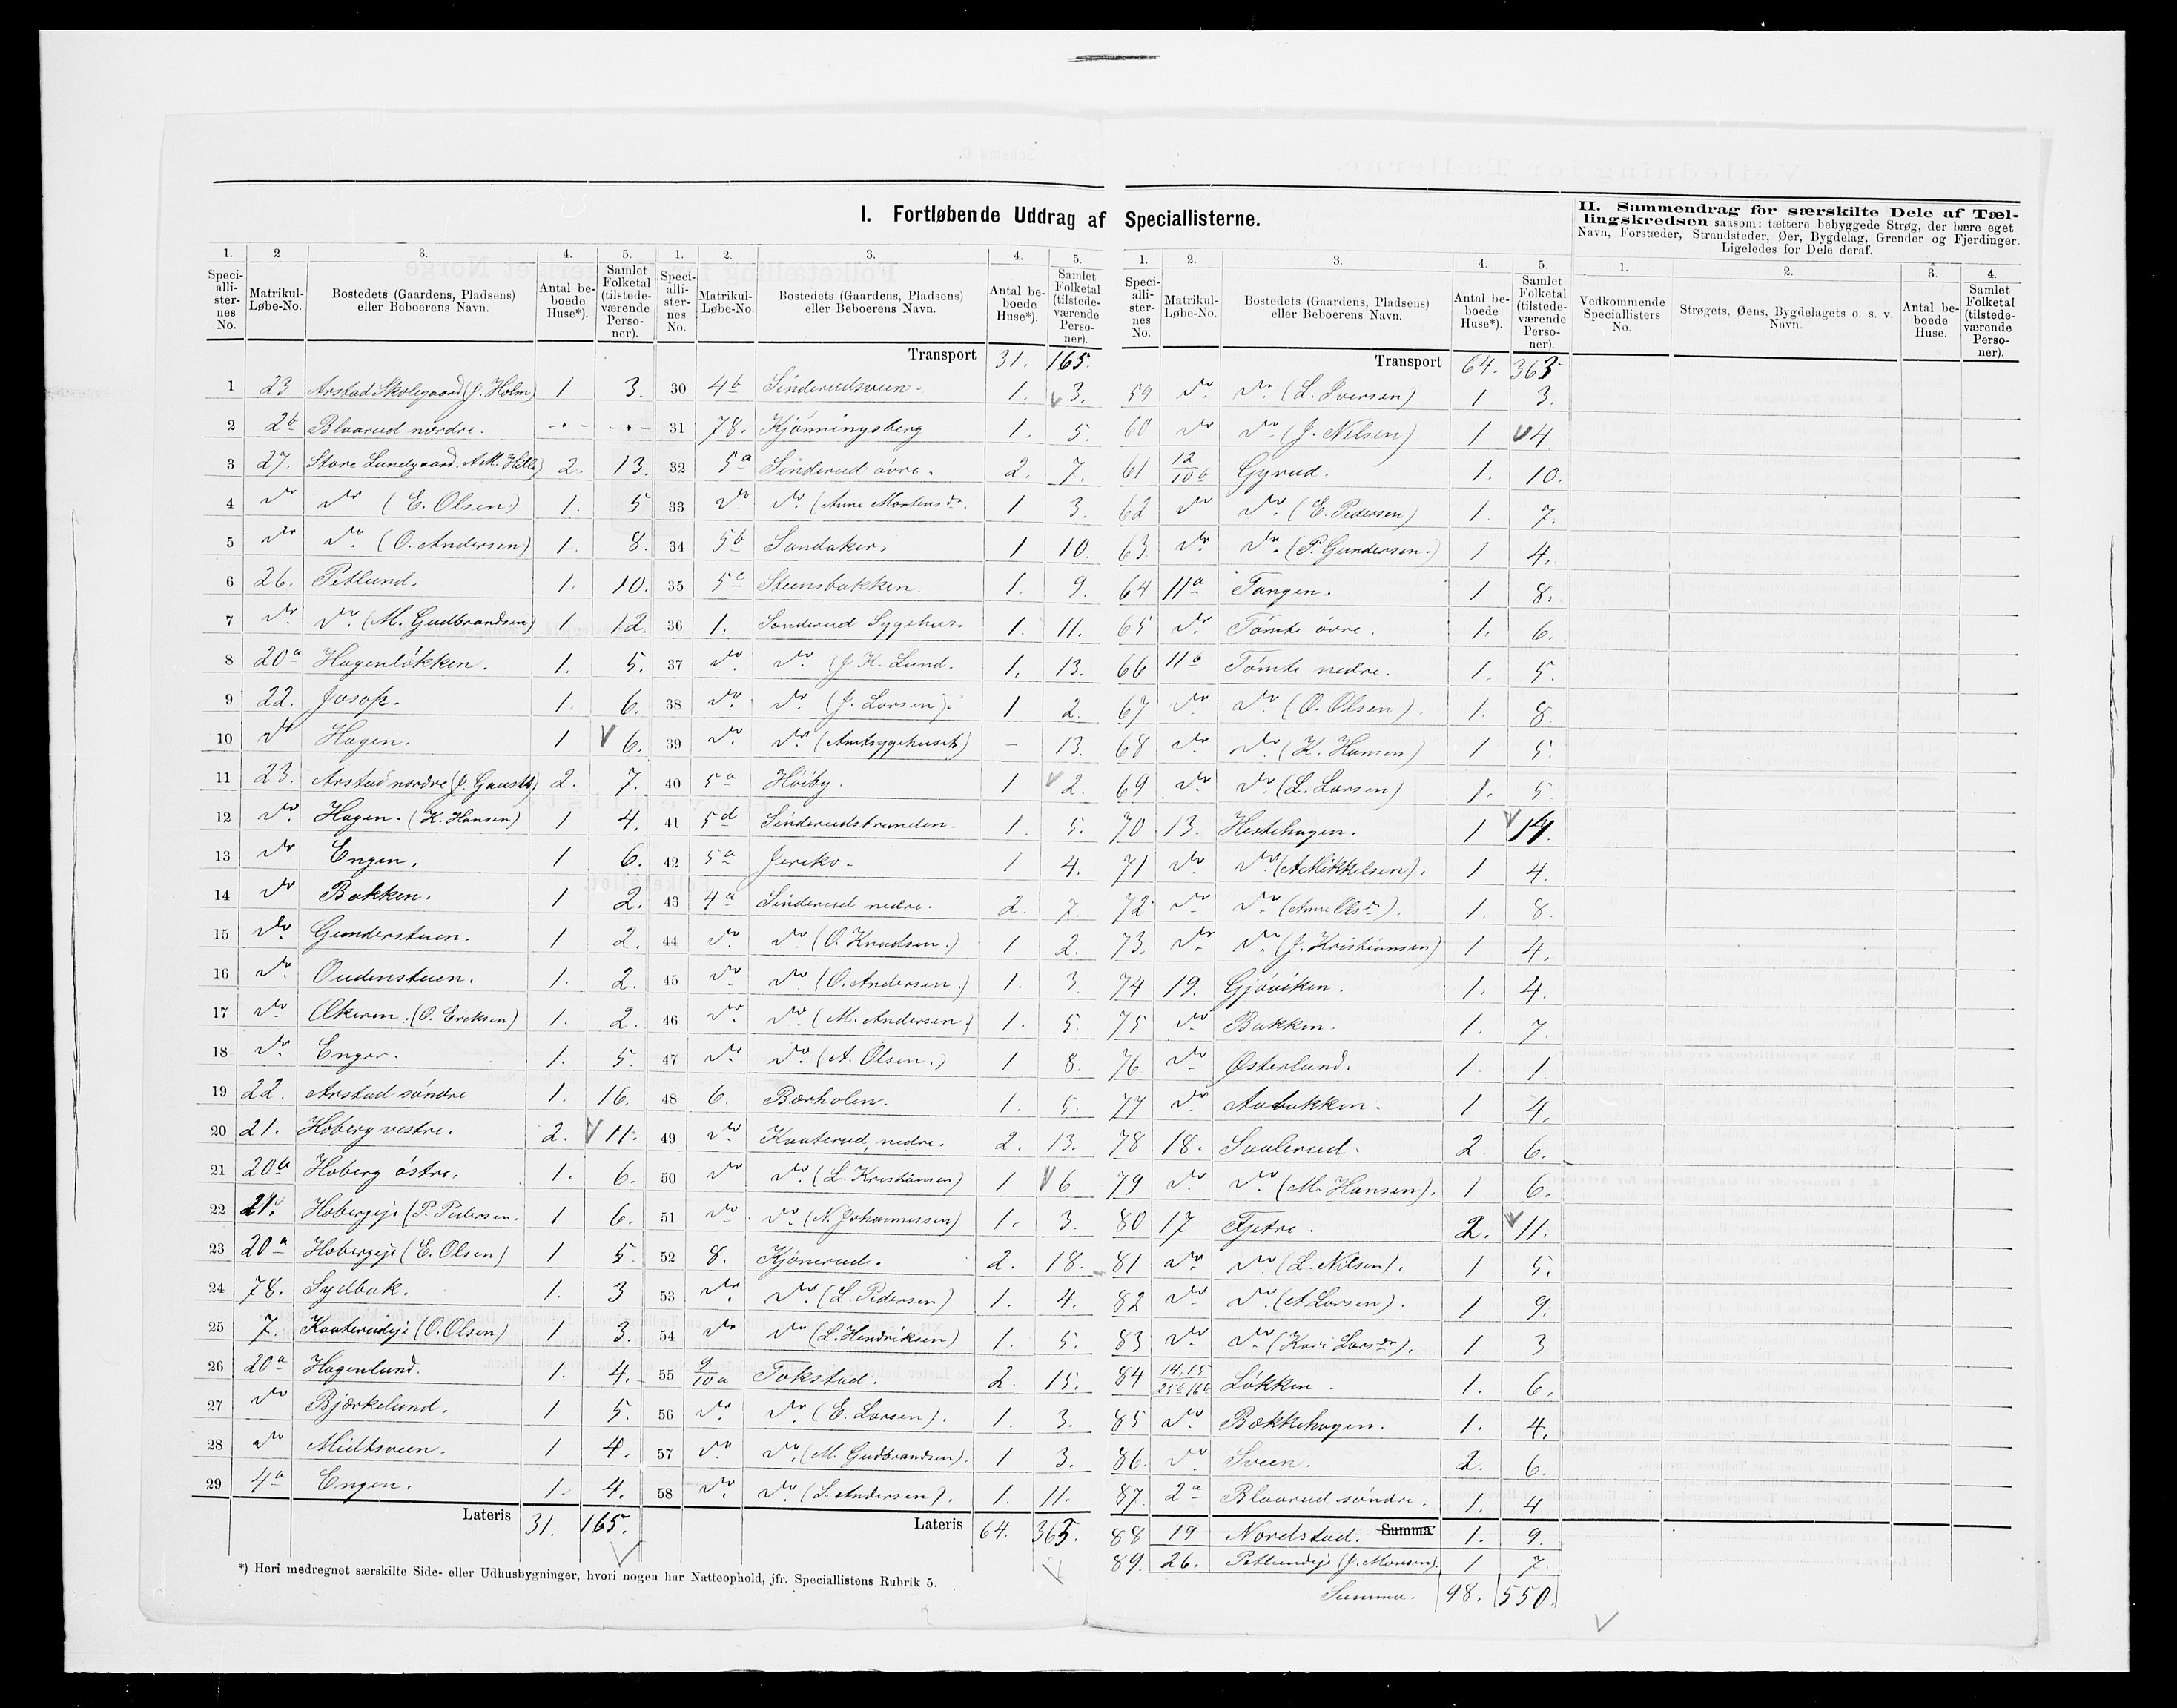 I. Fortløbende Uddrag af Speciallisterne.
II. Sammendrag for særskilte Dele af Tæl-
lingskredsen saasom: tættere bebyggede Strøg, der bære eget
Navn, Forstæder, Strandsteder, Øer, Bygdelag, Grender og Fjerdinger.
Ligeledes for Dele deraf.
1. 2 3. 4. 5.
Speci-alli-ster-nes No. Matrikul-Løbe-No. Bostedets (Gaardens, Pladsens) eller Beboerens Navn. Antal be-boede Huse*). Samlet Folketal (tilstede-værende Perso-ner).
1 23 Arstad Skolegaard (J. Holm) 1 3.
2 2b Blaarud nordre. - • - - • -
3 27. Store Lundgaard. A.M. Hille) 2. 13.
4 do do (E. Olsen) 1. 5
5 do do (O. Andersen) 1. 8.
6 26. Petlund. 1. 10.
7 do do (M. Gudbrandsen) 1 12.
8 20a Hagenløkken. 1. 5.
9 22. Josop. 1. 6.
10 do Hagen. 1 6.
11 23. Arstad nordre (J. Gausta) 2. 7.
12 do Hagen. (K. Hansen) 1 4.
13 do Engen. 1 6.
14 do Bakken. 1 2.
15 do Gunderstuen. 1 2.
16 do Oudenstuen. 1. 2.
17 do Ækeren. (O. Ericksen) 1. 2.
18 do Enger. 1. 5.
19 22. Arstad søndre 1. 16.
20 21. Hoberg vestre. 2. 11.
21 20a Hoberg østre. 1. 6.
22 21. Hobergeje (P. Pedersen. 1 6.
23 20a Hobergeje (E. Olsen) 1 5
24 78. Sydbak. 1. 3
25 7. Kaaterudeje (O. Olsen) 1 3.
26 20a Hagenlund. 1. 4.
27 do Bjørkelund. 1 5.
28 do Mieltsveen. 1 4.
29 4a Engen. 1. 4.
Lateris 31. 165.
*) Heri medregnet særskilte Side- eller Udhusbygninger, hvori nogen har Natteophold, jfr. Speciallistens Rubrik 5.
1. 2. 3. 4. 5.
Speci-alli-ster-nes No. Matrikul-Løbe-No. Bostedets (Gaardens, Pladsens) eller Beboerens Navn. Antal be-boede Huse*). Samlet Folketal (tilstede-værende Perso-ner).
Transport 31. 165.
30 4b Sinderudsveen. 1. 3.
31 78. Kjønningsberg 1. 5.
32 5a Sinderud øvre. 2. 7.
33 do do (Anne Mortensdr. 1 3.
34 5b Sandaker. 1 10.
35 5c Steensbakken. 1. 9.
36 1. Sanderud Sygehus. 1. 11.
37 do do (J. K. Lund. 1. 13.
38 do do (J. Larsen). 1 2.
39 do do (Amtsygehuset) - 13.
40 5a Høiby. 1 2.
41 5d Sinderudsbraaten. 1. 5.
42 5a Jeriko. 1 4.
43 4a Sinderud nedre. 2. 7.
44 do do (O. Knudsen.) 1 2.
45 do do (O. Andersen.) 1. 3
46 do do (M. Andersen) 1. 5.
47 do do (A. Olsen.) 1 8.
48 6. Bærholen. 1. 5.
49 do Kaaterud, nedre. 2. 13.
50 do do (L. Kristiansen) 1 6
51 do do (N. Johannessen) 1. 3.
52 8. Kjønerud. 2. 18.
53 do do (L. Pedersen) 1. 4.
54 do do (L. Hendriksen) 1. 5.
55 9/10a Tokstad. 2. 15.
56 do do (E. Larsen). 1. 3.
57 do do (M. Gudbrandsen). 1 3.
58 do do (L. Andersen). 1. 11.
Lateris 64. 363.
1. 2. 3. 4. 5.
Speci-alli-ster-nes No. Matrikul-Løbe-No. Bostedets (Gaardens, Pladsens) eller Beboerens Navn. Antal be-boede Huse*). Samlet Folketal (tilstede-værende Perso-ner).
Transport 64. 363
59 do do (L. Iversen) 1 3.
60 do do (J. Nilsen) 1 4
61 12/10b Gyrud. 1. 10.
62 do do (E. Pedersen) 1. 7.
63. do do (P. Gundersen.) 1 4.
64 11a Tangen. 1 8.
65 do Tømte øvre. 1. 6.
66 11b Tømte nedre. 1. 5.
67 do do (O. Olsen) 1. 8
68 do do (K. Hansen) 1 5.
69 do do (L. Larsen) 1. 5
70 13. Hestehagen. 1 14.
71 do do (A Mikkelsen). 1 4.
72 do do (Anne Olsdr). 1. 8.
73. do do (J. Kristiansen) 1 4.
74 19. Gjøviken. 1. 4.
75 do Bakken. 1. 7.
76 do Østerlund. 1. 1.
77 do Aabakken. 1 4.
78 18. Saalerud. 2 6.
79 do do (M. Hansen). 1 6.
80 17 Tjetre. 2. 11.
81 do do (L. Nilsen). 1 5.
82 do do (A Larsen). 1 9.
83 do do (Kari Larsdr). 1 3
84 14,15/25b 16b Løkken. 1. 6.
85 do Bækkehagen. 1. 4.
86. do Sveen. 2. 6.
87. 2a Blaarud søndre. 1. 4
88 19 Nordstad. Summa 1. 9.
89. 26. Petlundeje (J. Monsen). 1 7.
Summa. 98. 550.
1. 2. 3. 4.
Vedkommende Speciallisters No. Strøgets, Øens, Bygdelagets o. s. v. Navn. Antal be-boede Huse. Samlet Folketal (tilstede-værende Perso-ner).